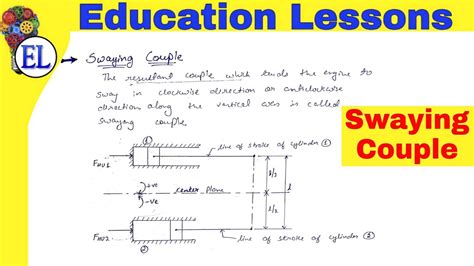 Education Lessons
EL
→ Swaying Couple
The resultant couple which tends the engine to
sway in clockwise direction or anticlockwise
direction along the vertical axis is called
swaying couple
Swaying
Couple
①
line of stroke of cylinder ①
FHU1
+ve
-ve
center plane
l/2
l
l/2
FHU2
line of stroke of cylinder ②
②